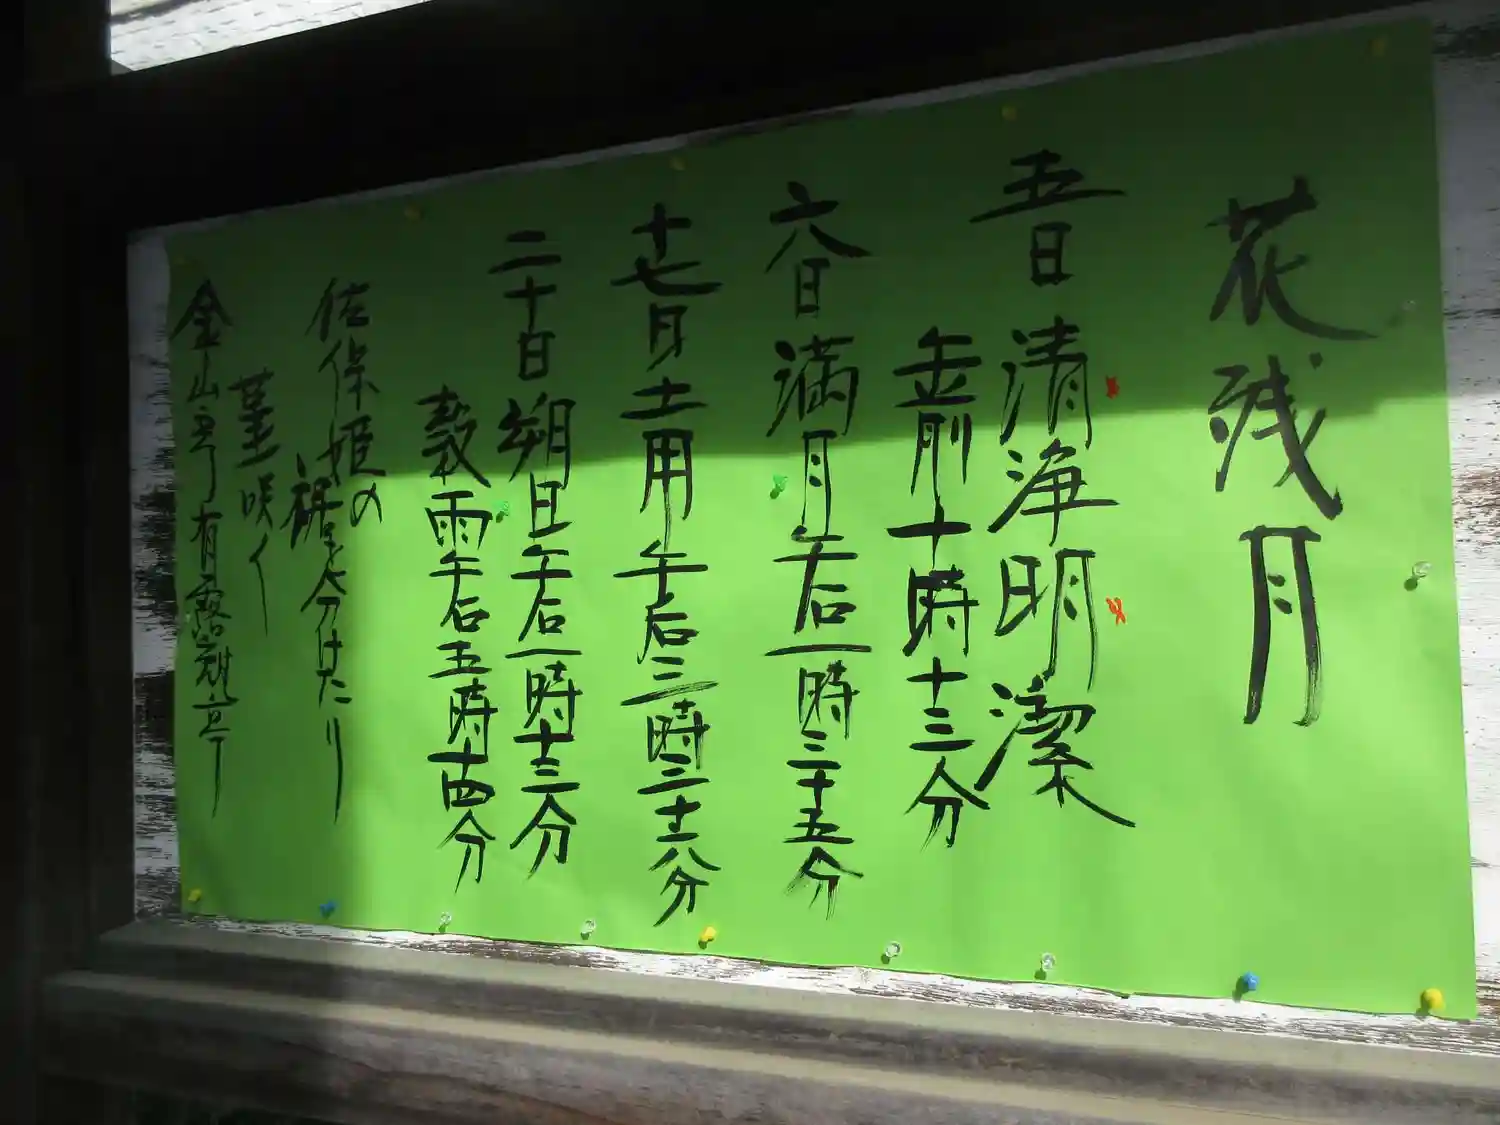 花残月
五日清浄明潔
午前十時十三分
六日満月午后一時三十五分
十七日土用午后三時二十八分
二十日朔旦午后一時十三分
穀雨午后五時十四分
佐保姫の
裾を分けたり
菫咲く
金山
有